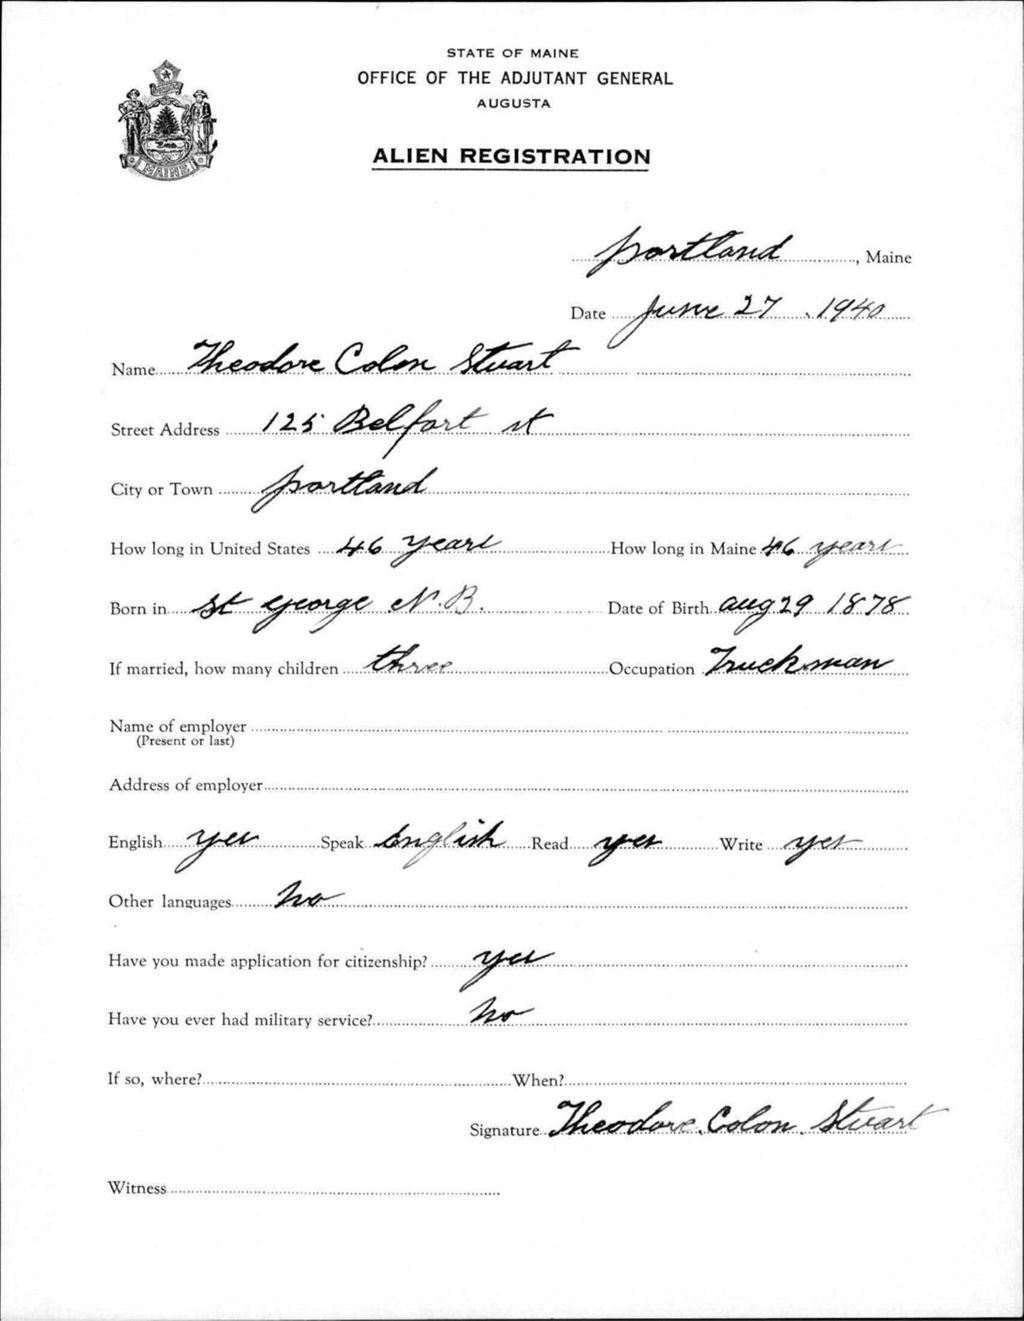 STATE OF MAINE
OFFICE OF THE ADJUTANT GENERAL
AUGUSTA
ALIEN REGISTRATION
MAINE
portland, Maine
Date June 27, 1940
Name Theodore Colon Stuart
Street Address 125 Belfort st
City or Town portland
How long in United States 46 years How long in Maine 46 years
Born in St george N.B. Date of Birth aug 29 1878
If married, how many children three Occupation Trucksman
Name of employer
(Present or last)
Address of employer
English yes Speak English Read yes Write yes
Other languages No
Have you made application for citizenship? yes
Have you ever had military service? No
If so, where? When?
Signature Theodore. Colon. Stuart
Witness